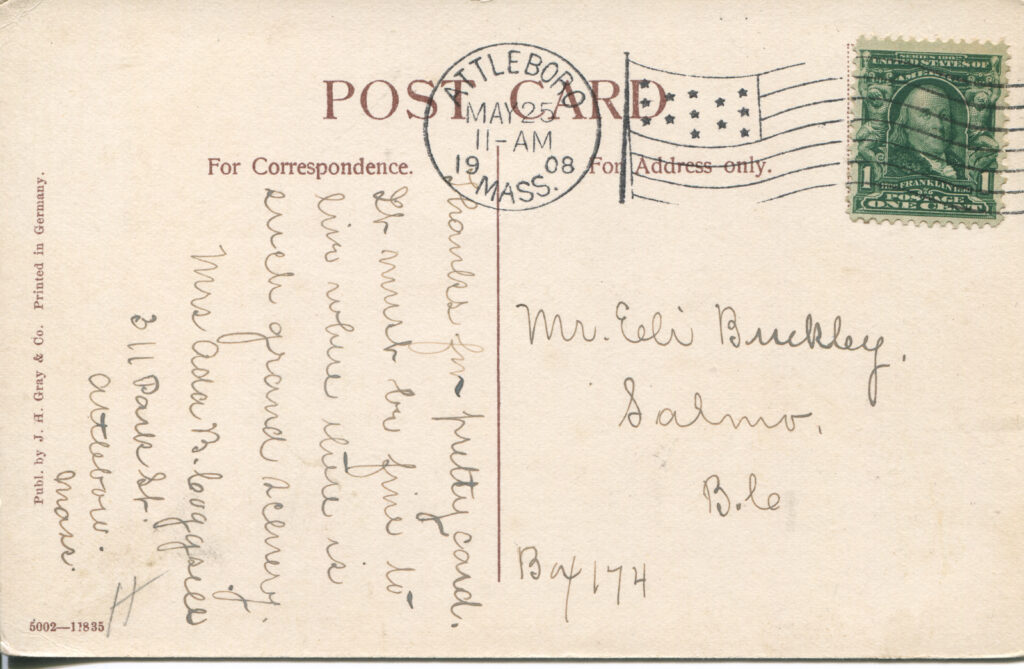 POST CARD
For Correspondence.
For Address only.
ATTLEBORO
MAY 25
11-AM
19 08
MASS.
SERIES 1902
UNITED STATES OF
AMERICA
1 FRANKLIN 1
POSTAGE
ONE CENT
Thanks for pretty card.
It must be fine to
live where there is
such grand scenery.
Mrs Ada B. Coggsell
311 Park St.
Attleboro.
Mass.
Mr. Eli Buckley.
Salmo,
B.C
Box 174
Publ. by J. H. Gray & Co. Printed in Germany.
5002—11835
H